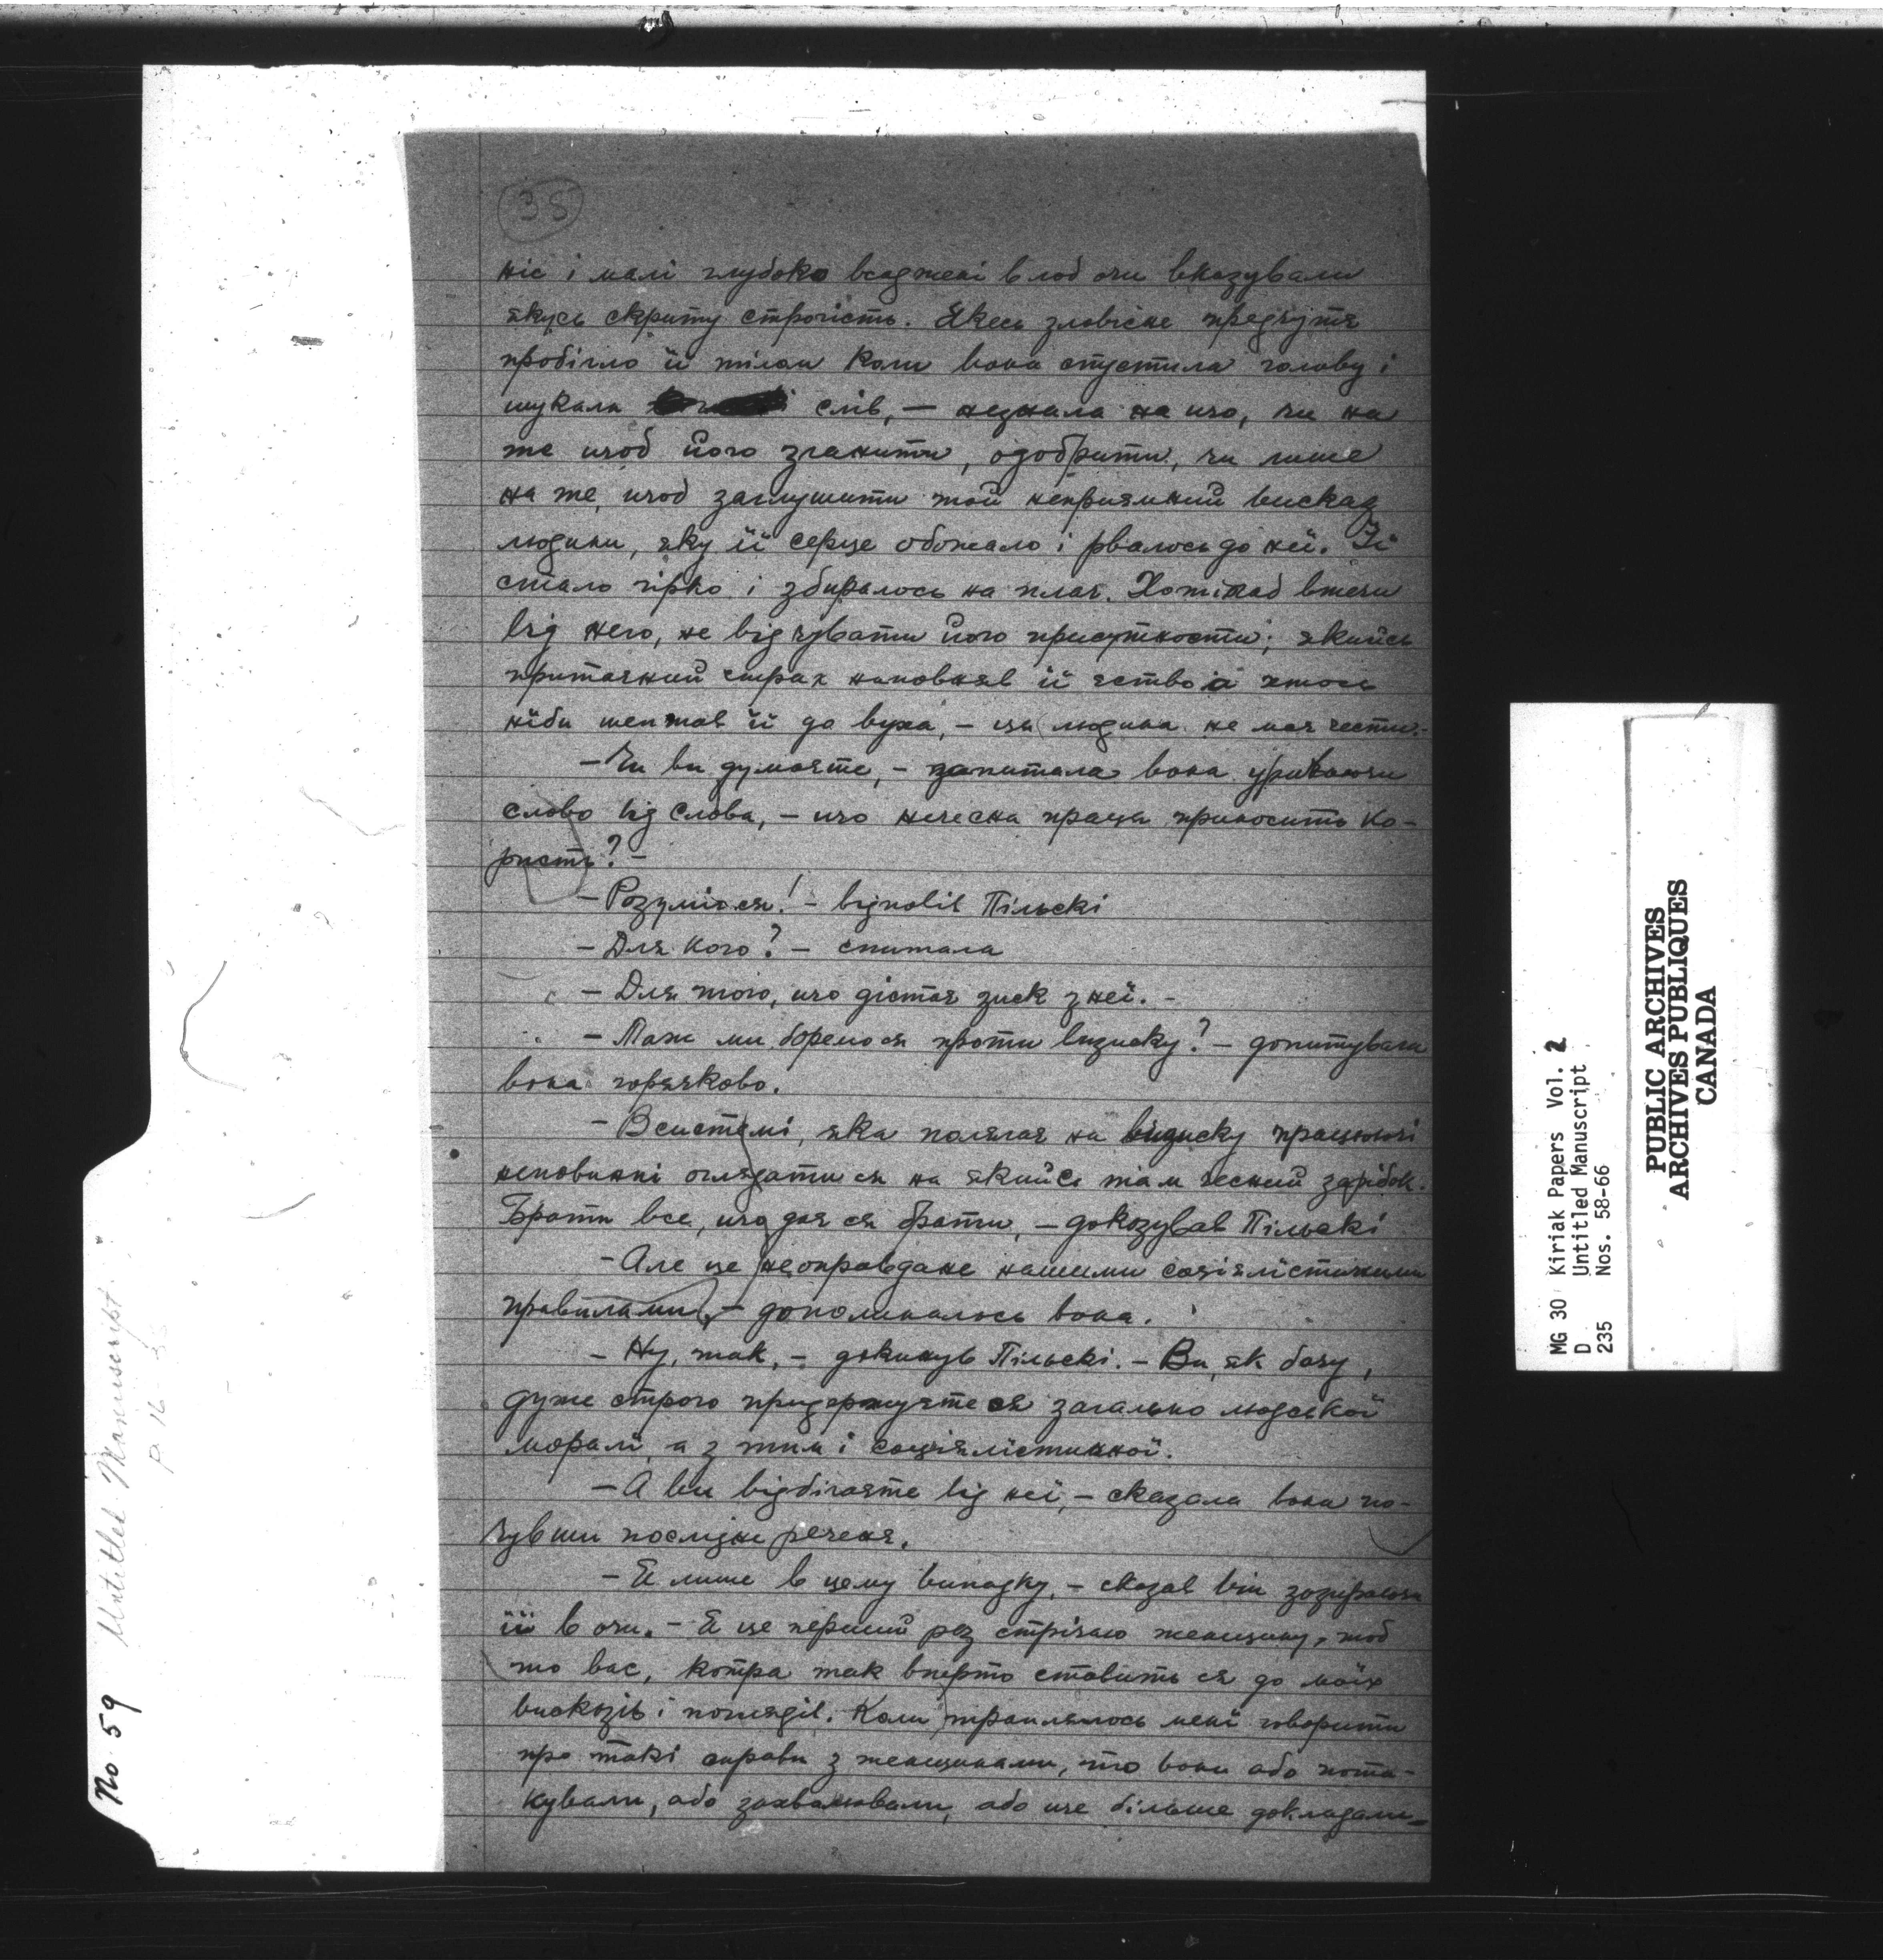 35
ніс і малі глубоко всаджені в лоб очи вказували
якусь скриту строгість. Якесь зловісне предчутя
пробігло її тілом коли вона спустила голову і
шукала слів, — незнала на що, чи на
те щоб його зганити, одобрити, чи лише
на те, щоб заглушити той неприямний висказ
людини, яку її серце обожало і рвалось до неї. Їй
стало гірко і збиралось на плач. Хотілаб втечи
від него, не відчувати його присутности; якийсь
притачний страх наповняв її єство а хтось
ніби шептав її до вуха, — ця людина не має чести.-
— Чи ви думаєте, — запитала вона уриваючи
слово від слова, — що нечесна праця приносить ко-
ристь? —
— Розумієся! — відповів Пільскі
— Для кого? — спитала
— Для того, що дістає зиск з неї. -
— Таж ми боремося проти визиску? — допитувала
вона горячково.
— В системі, яка полягає на визиску працюючі
неповинні оглядатися на якийсь там чесний зарібок.
Брати все, що дає ся брати, — доказував Пільскі
— Але це неоправдане нашими соціялістичними
правилами, — допоминалось вона.
— Ну, так, — докинув Пільскі. — Ви, як бачу,
дуже строго придержуєте ся загально людської
моралі, а з тим і соціялістичної.
— А ви відбігаєте від неї, — сказала вона по-
чувши послідне речення.
— Я лише в цему випадку, — сказав він зазираючи
її в очи. — Я це перший раз стрічаю женщину, тоб
то вас, котра так вперто ставить ся до моїх
висказів і поглядів. Коли траплялось мені говорити
про такі справи з женщинами, то вони або пота-
кували, або захвалювали, або ще більше докладали-
No 59 Untitled Manuscript
P. 16-35
MG 30 Kiriak Papers Vol. 2
D Untitled Manuscript
235 Nos. 58-66
PUBLIC ARCHIVES
ARCHIVES PUBLIQUES
CANADA